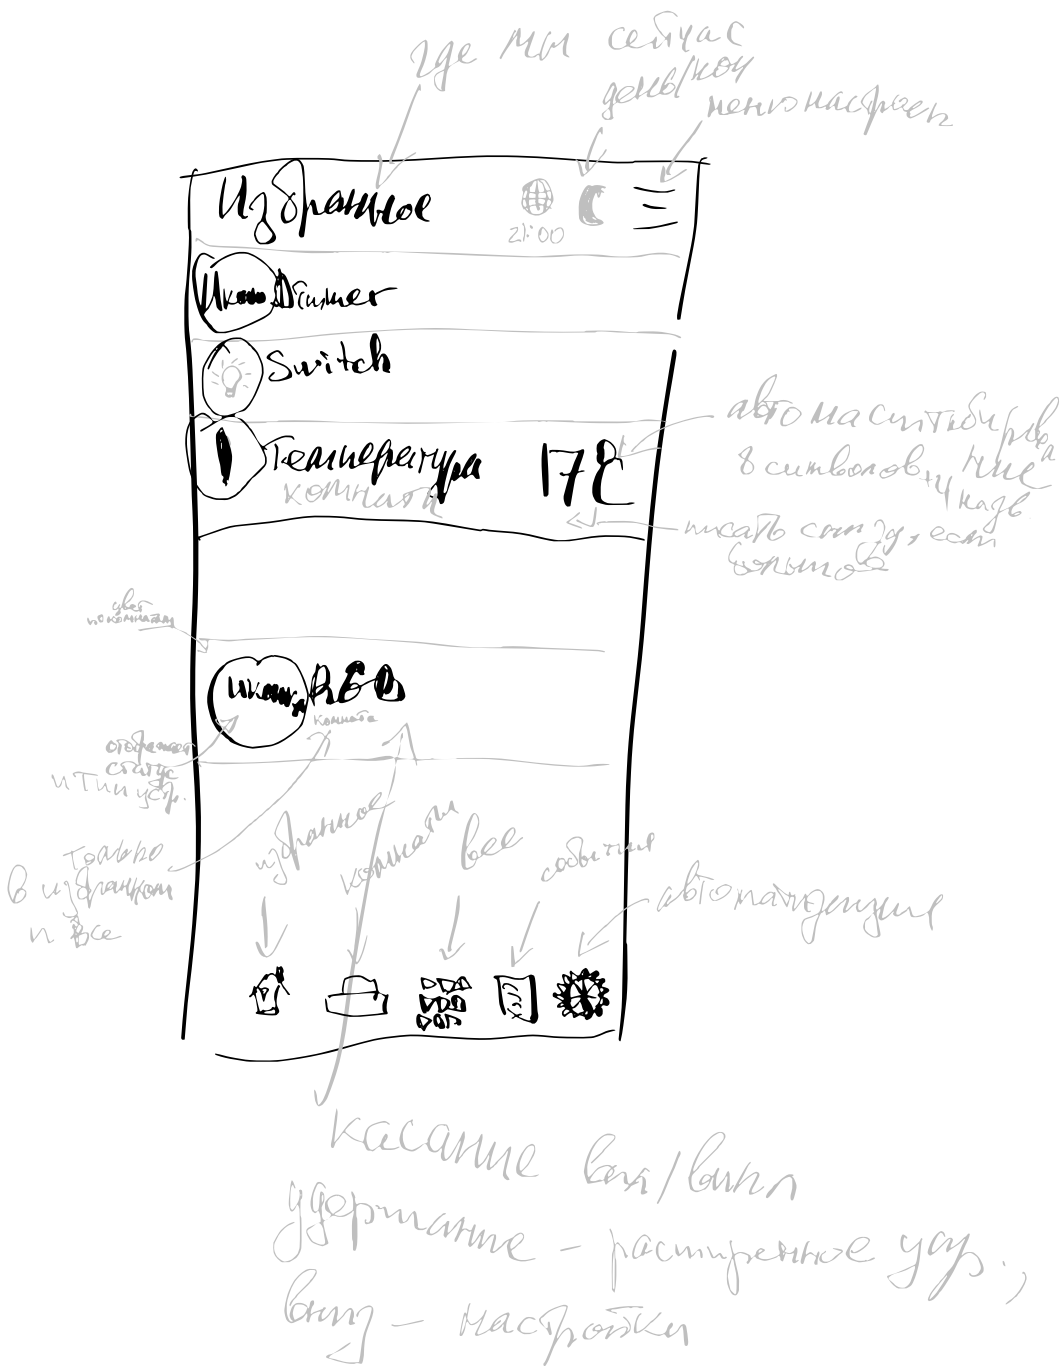 где мы сейчас
день/ноч
меню настроек
Избранное
21:00
Икон
Dimmer
Switch
Температура
17C
комната
автомасштабирова
ние
8 символов +4 назв
писать снизу, если
большое
цвет
по комнатам
иконка
RGB
комната
отображает
статус
и тип устр.
только
в избранном
и все
избранное
комнаты
все
события
автоматизация
касание вкл/выкл
удержание - расширенное упр.,
вниз - настройки